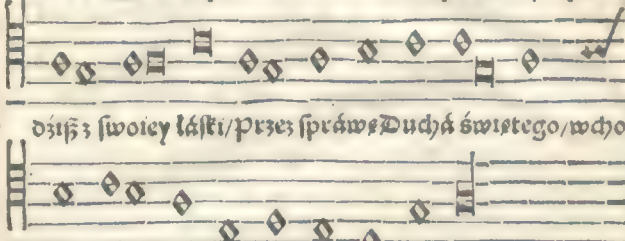 dziß z swoiey łáski/Przez spráwę Duchá świętego/wcho